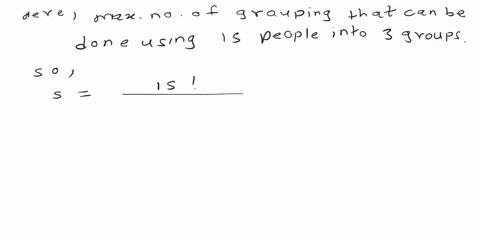 Here, max. no. of grouping that can be
done using 15 people into 3 groups.
so,
s = 15 !